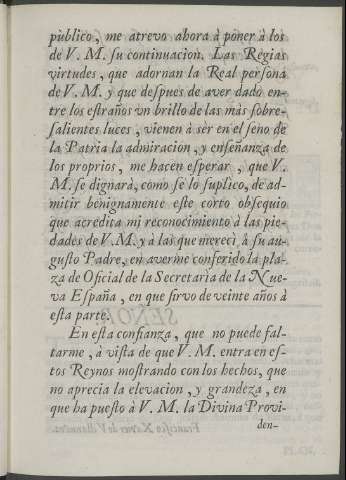 publico, me atrevo ahora à poner à los
de V. M. su continuacion. Las Regias
virtudes, que adornan la Real persona
de V. M. y que despues de aver dado en-
tre los estraños vn brillo de las màs sobre-
salientes luces, vienen à ser en el seno de
la Patria la admiracion, y enseñanza de
los proprios, me hacen esperar, que V.
M. se dignarà, como se lo suplico, de ad-
mitir benignamente este corto obsequio
que acredita mi reconocimiento à las pie-
dades de V. M. y à las que mereci à su au-
gusto Padre, en averme conferido la pla-
za de Oficial de la Secretaria de la Nue-
va España, en que sirvo de veinte años à
esta parte.
En esta confianza, que no puede fal-
tarme, à vista de que V. M. entra en es-
tos Reynos mostrando con los hechos, que
no aprecia la elevacion, y grandeza, en
que ha puesto à V. M. la Divina Provi-
den-